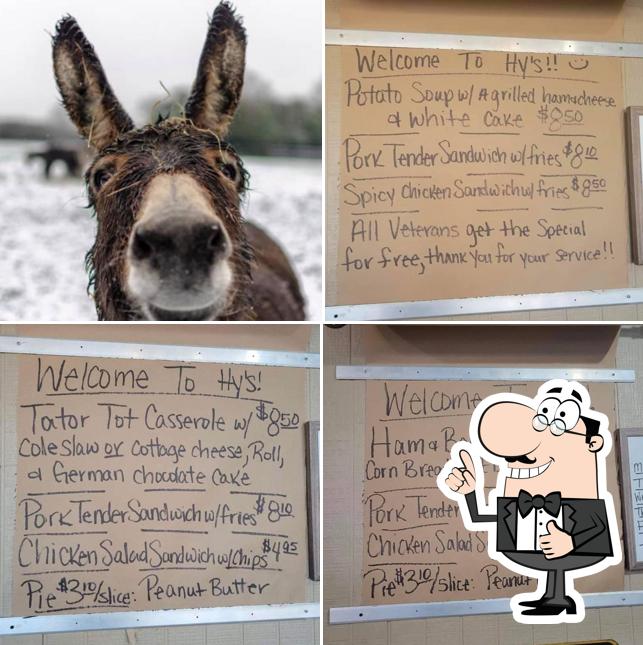 Welcome To Hy's!!
Potato Soup w/ A grilled ham & cheese
& White Cake $8.50
Pork Tender Sandwich w/ fries $8.10
Spicy Chicken Sandwich w/ fries $8.50
All Veterans get the Special
for free, thank you for your service!!
Welcome To Hy's!
Tator Tot Casserole w/ $8.50
Coleslaw or Cottage cheese, Roll,
& German chocolate Cake
Pork Tender Sandwich w/ fries $8.10
Chicken Salad Sandwich w/ chips $4.95
Pie $3.10/slice: Peanut Butter
Welcome
Ham &
Corn Bread
Pork Tender
Chicken Salad
Pie $3.10/slice: Peanut